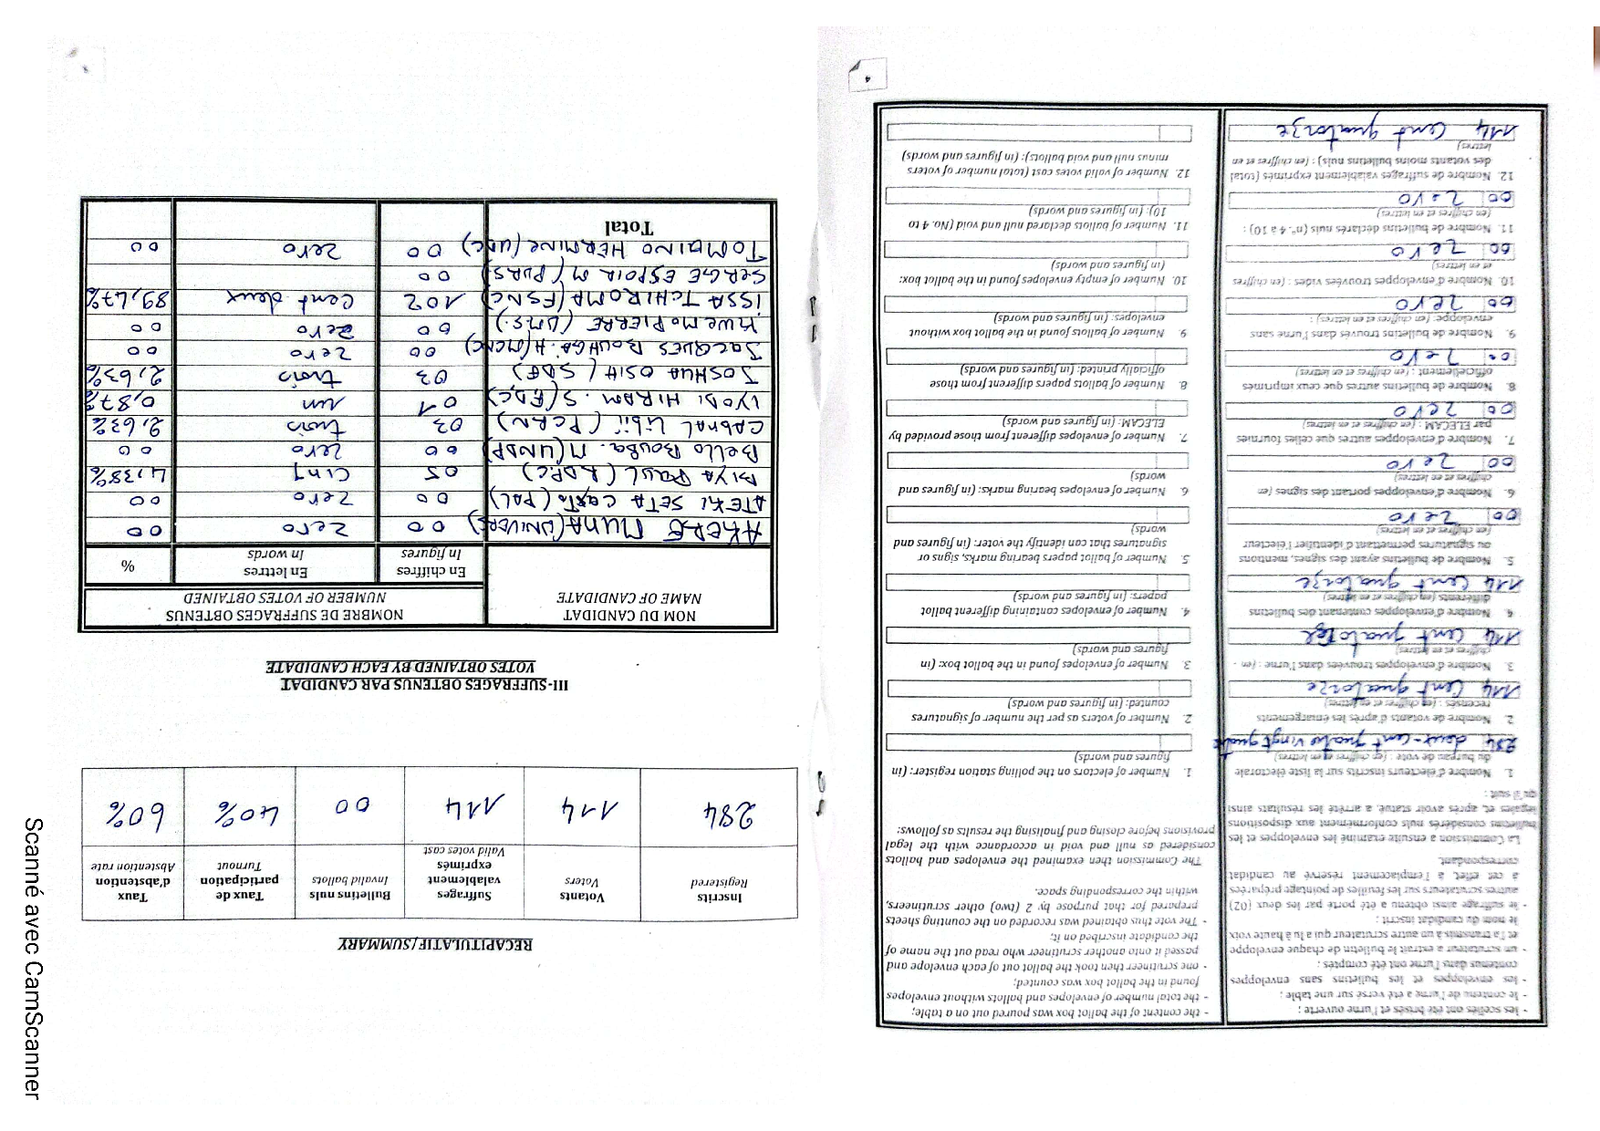 4
- les scellés ont été brisés et l'urne ouverte ;
- le contenu de l'urne a été versé sur une table ;
- les enveloppes et les bulletins sans enveloppes
contenus dans l'urne ont été comptés ;
- un scrutateur a extrait le bulletin de chaque enveloppe
et l'a transmis à un autre scrutateur qui a lu à haute voix
le nom du candidat inscrit ;
- le suffrage ainsi obtenu a été porté par les deux (02)
autres scrutateurs sur les feuilles de pointage préparées
à cet effet, à l'emplacement réservé au candidat
correspondant.
La Commission a ensuite examiné les enveloppes et les
bulletins considérés nuls conformément aux dispositions
légales et, après avoir statué, a arrêté les résultats ainsi
qu'il suit :
1. Nombre d'électeurs inscrits sur la liste électorale
du bureau de vote : (en chiffres et en lettres)
284 deux-cent quatre vingt quatre
2. Nombre de votants d'après les émargements
recensés : (en chiffres et en lettres)
114 Cent quatorze
3. Nombre d'enveloppes trouvées dans l'urne : (en
chiffres et en lettres)
114 Cent quatorze
4. Nombre d'enveloppes contenant des bulletins
différents (en chiffres et en lettres)
114 Cent quatorze
5. Nombre de bulletins ayant des signes, mentions
ou signatures permettant d'identifier l'électeur
(en chiffres et en lettres)
00 zero
6. Nombre d'enveloppes portant des signes (en
chiffres et en lettres)
00 zero
7. Nombre d'enveloppes autres que celles fournies
par ELECAM : (en chiffres et en lettres)
00 zero
8. Nombre de bulletins autres que ceux imprimés
officiellement : (en chiffres et en lettres)
00 zero
9. Nombre de bulletins trouvés dans l'urne sans
enveloppe: (en chiffres et en lettres) :
00 zero
10. Nombre d'enveloppes trouvées vides : (en chiffres
et en lettres)
00 zero
11. Nombre de bulletins déclarés nuls (n°. 4 à 10) :
(en chiffres et en lettres)
00 zero
12. Nombre de suffrages valablement exprimés (total
des votants moins bulletins nuls) : (en chiffres et en
lettres)
114 Cent quatorze
- the content of the ballot box was poured out on a table;
- the total number of envelopes and ballots without envelopes
found in the ballot box was counted;
- one scrutineer then took the ballot out of each envelope and
passed it onto another scrutineer who read out the name of
the candidate inscribed on it;
- The vote thus obtained was recorded on the counting sheets
prepared for that purpose by 2 (two) other scrutineers,
within the corresponding space.
The Commission then examined the envelopes and ballots
considered as null and void in accordance with the legal
provisions before closing and finalising the results as follows:
1. Number of electors on the polling station register: (in
figures and words)
2. Number of voters as per the number of signatures
counted: (in figures and words)
3. Number of envelopes found in the ballot box: (in
figures and words)
4. Number of envelopes containing different ballot
papers: (in figures and words)
5. Number of ballot papers bearing marks, signs or
signatures that can identify the voter: (in figures and
words)
6. Number of envelopes bearing marks: (in figures and
words)
7. Number of envelopes different from those provided by
ELECAM: (in figures and words)
8. Number of ballots papers different from those
officially printed: (in figures and words)
9. Number of ballots found in the ballot box without
envelopes: (in figures and words)
10. Number of empty envelopes found in the ballot box:
(in figures and words)
11. Number of ballots declared null and void (No. 4 to
10): (in figures and words)
12. Number of valid votes cast (total number of voters
minus null and void ballots): (in figures and words)
RECAPITULATIF/SUMMARY
Inscrits Registered
Votants Voters
Suffrages valablement exprimés Valid votes cast
Bulletins nuls Invalid ballots
Taux de participation Turnout
Taux d'abstention Abstention rate
284 114 114 00 40% 60%
III-SUFFRAGES OBTENUS PAR CANDIDAT
VOTES OBTAINED BY EACH CANDIDATE
NOM DU CANDIDAT
NAME OF CANDIDATE
NOMBRE DE SUFFRAGES OBTENUS
NUMBER OF VOTES OBTAINED
En chiffres In figures
En lettres In words
%
AKERE MUNA (UNIVERS) 00 zero 00
ATEKI SETA Caxto (PAL) 00 zero 00
BIYA PAUL (RDPC) 05 cinq 4,38%
Bello Bouba. M (UNDP) 00 zero 00
CABRAL Libii (PCRN) 03 trois 2,63%
LYODI HIRAM. S (FDC) 01 un 0,87%
JOSHUA OSIH (SDF) 03 trois 2,63%
JACQUES BOUHGA. H (MCNC) 00 zero 00
KWEMO PIERRE (UMS). 00 zero 00
ISSA TCHIROMA (FSNC) 102 Cent deux 89,47%
SERGE ESPOIR M (PURS) 00
TOMAINO HERMINE (UDC) 00 zero 00
Total
Scanné avec CamScanner